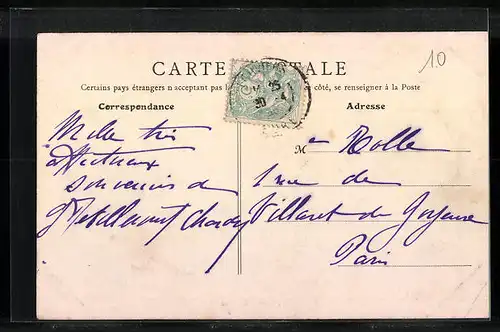 10
CARTE POSTALE
Certains pays étrangers n'acceptant pas l côté, se renseigner à la Poste
Correspondance
Adresse
Mille très
affectueux
souvenirs de
M e Rolle
1 rue de
Villaret de Joyeuse
Paris